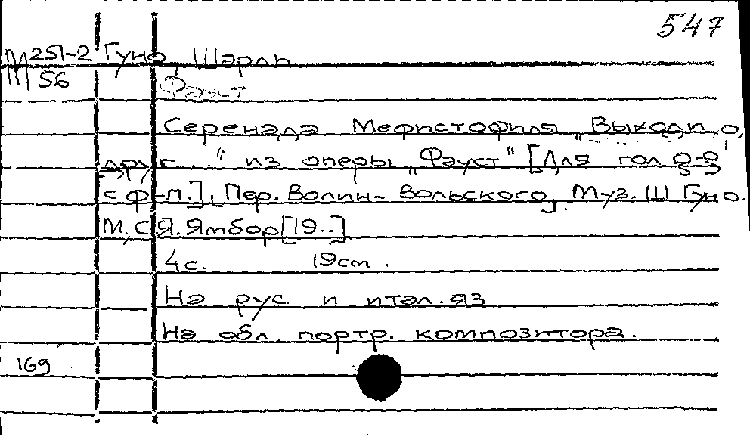 547
М 251-2 Гуно, Шарль
56
Фауст
Серенада Мефистофиля „Выходи о,
друг " из оперы „Фауст" [Для голоса
с ф-п.], Пер. Волин-Вольского, Муз. Ш Гуно.
М, С Я. Ямбор [19..]
4с. 19cm.
На рус и итал. яз
На обл. портр. композитора.
169